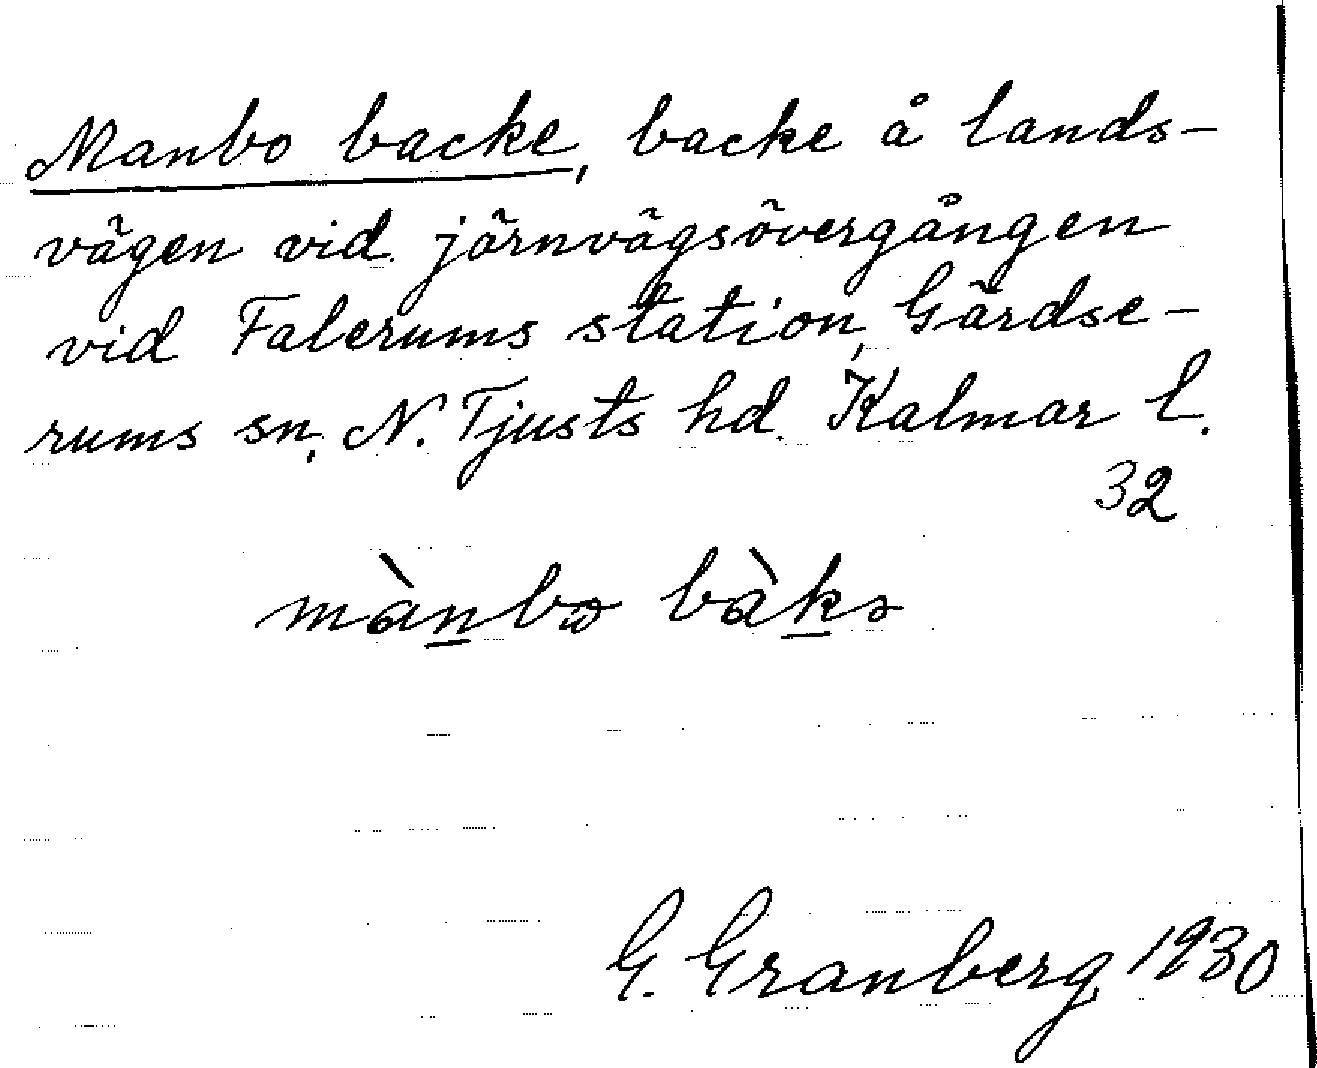 Manbo backe, backe å lands-
vägen vid järnvägsövergången
vid Falerums station, Gärdse-
rums sn, N. Tjusts hd. Kalmar l.
32
mànbɷ bàkə
G. Granberg 1930